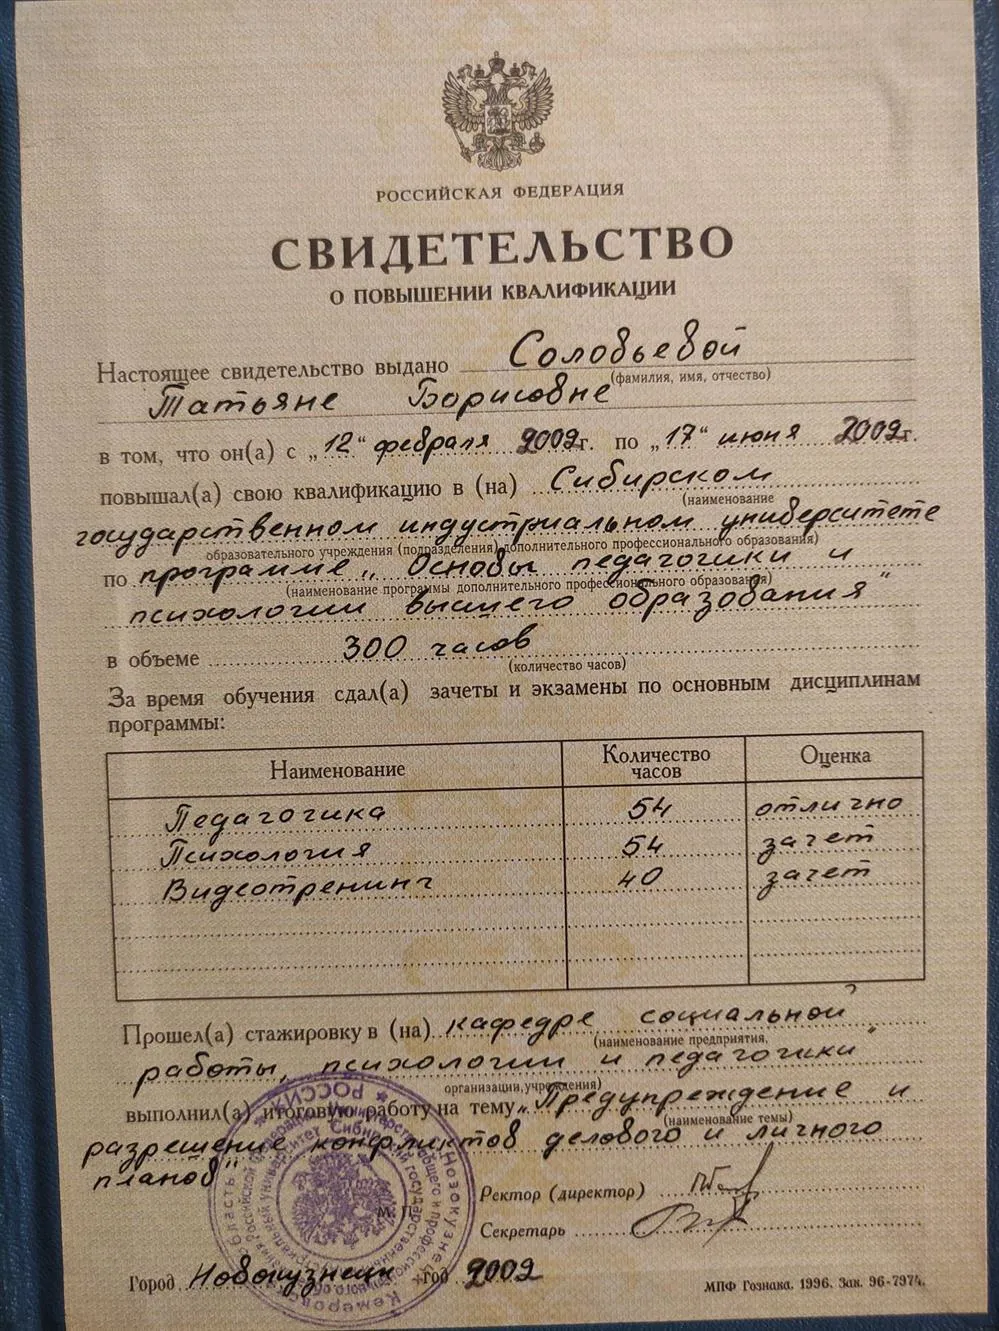 РОССИЙСКАЯ ФЕДЕРАЦИЯ
СВИДЕТЕЛЬСТВО
О ПОВЫШЕНИИ КВАЛИФИКАЦИИ
Настоящее свидетельство выдано Соловьевой
(фамилия, имя, отчество)
Татьяне Борисовне
в том, что он(а) с „12“ февраля 2002г. по „17“ июня 2002г.
повышал(а) свою квалификацию в (на) Сибирском
(наименование
государственном индустриальном университете
образовательного учреждения (подразделения) дополнительного профессионального образования)
по программе „Основы педагогики и
(наименование программы дополнительного профессионального образования)
психологии высшего образования"
в объеме 300 часов
(количество часов)
За время обучения сдал(а) зачеты и экзамены по основным дисциплинам
программы:
Наименование Количество часов Оценка
Педагогика 54 отлично
Психология 54 зачет
Видеотренинг 40 зачет
Прошел(а) стажировку в (на) кафедре социальной
(наименование предприятия,
работы, психологии и педагогики
организации, учреждения)
выполнил(а) итоговую работу на тему „Предупреждение и
(наименование темы)
разрешение конфликтов делового и личного
планов"
Ректор (директор)
Секретарь
М. П.
Город Новокузнецк год 2002
МПФ Гознака. 1996. Зак. 96-7974.